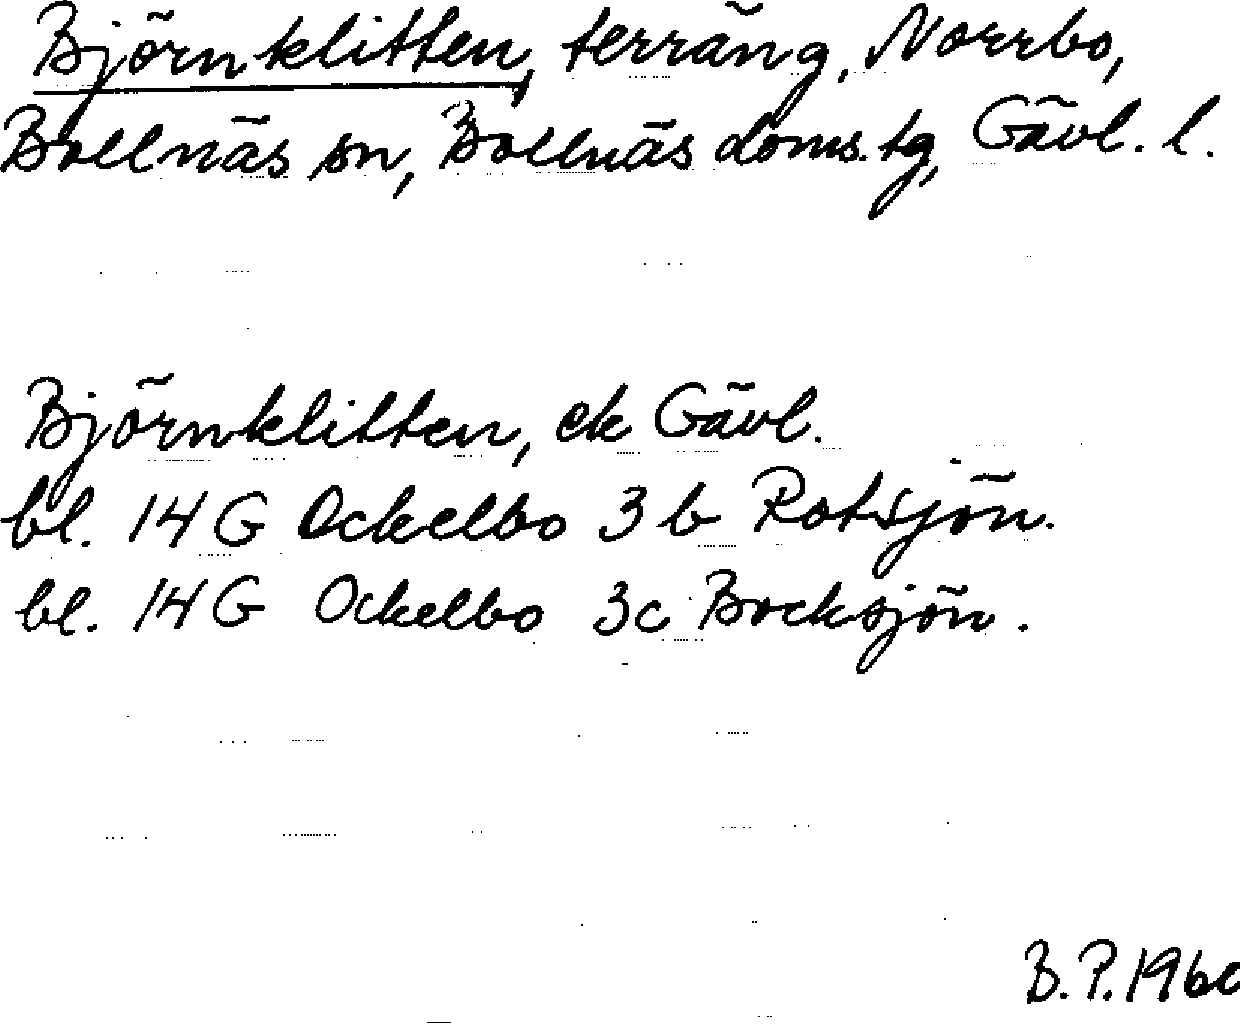 Björnklitten, terräng, Norrbo,
Bollnäs sn, Bollnäs doms. tg, Gävl. l.
Björnklitten, ek Gävl.
bl. 14 G Ockelbo 3 b Rotsjön.
bl. 14 G Ockelbo 3c Bocksjön.
B. P. 1960